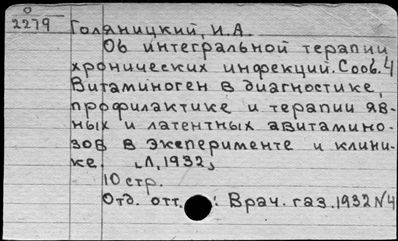 О
2279 Голяницкий, И.А.
Об интегральной терапии
хронических инфекций. Сооб. 4
Витаминоген в диагностике,
профилактике и терапии яв-
ных и латентных авитамино-
зов в эксперименте и клини-
ке. Л, 1932,
10 стр.
Отд. отт. : Врач. газ. 1932 N4